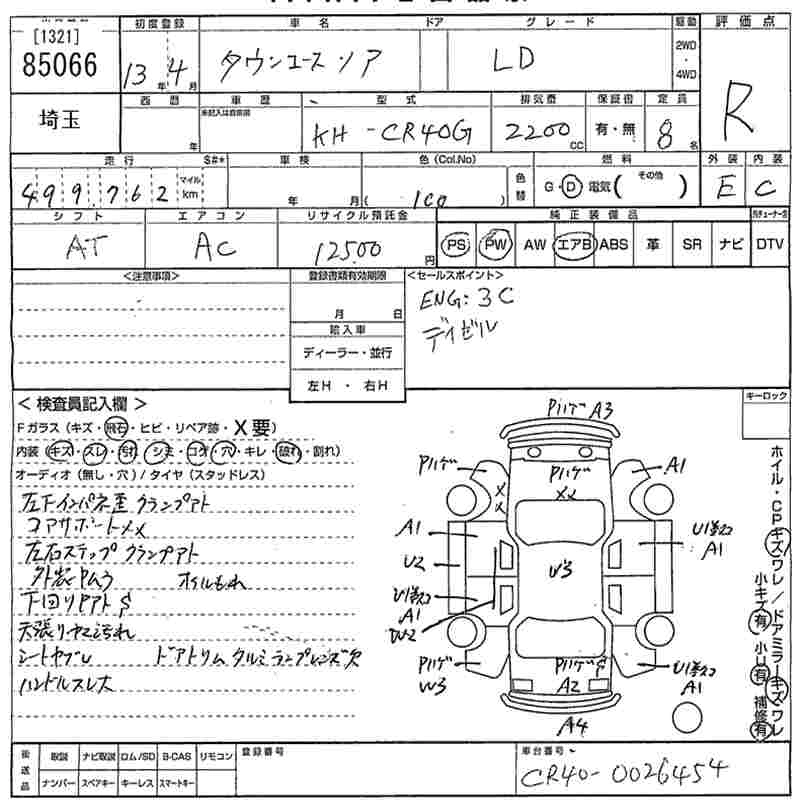 [1321]
85066
埼玉
初度登録
13年 4月
車名
ドア
グレード
タウンエースノア
LD
駆動
2WD
・
4WD
評価点
R
西暦
年
車歴
未記入は自家用
型式
KH-CR40G
排気量
2200 CC
保証書
有・無
定員
8名
走行
S#*
499762
マイル
km
車検
年 月
色(Col.No)
( 100 )
色替
燃料
G・D 電気( その他 )
外装
E
内装
C
シフト
AT
エアコン
AC
リサイクル預託金
12500円
純正装備品
PS PW AW エアB ABS 革 SR ナビ DTV
<注意事項>
登録書類有効期限
月 日
輸入車
ディーラー・並行
左H ・ 右H
<セールスポイント>
ENG: 3C
ディゼル
<検査員記入欄>
Fガラス(キズ・飛石・ヒビ・リペア跡・X要)
内装(キズ・スレ・汚れ・シミ・コゲ・穴・キレ・破れ・割れ)
オーディオ(無し・穴)/タイヤ(スタッドレス)
左下インパネ歪 クランプアト
コアサポートXX
左右ステップクランプアト
外装ヤムラ オイルもれ
下回りヤアトS
天張りヤマ汚れ
シートヤブレ ドアトリムタルミ ランプレンズ欠
ハンドルスレ大
キーロック
Pハゲ A3
Pハゲ
XX
Pハゲ
XX
A1
A1
U2
U1多数
A1
W2
U3
U1多数
A1
Pハゲ
W3
PハゲS
A2
U1多数
A1
A4
ホイル・CPキズワレ/ドアミラーキズワレ
小キズ有 小U有 補修有
後送品
取説 ナビ取説 ロム/SD B-CAS リモコン
ナンバー スペアキー キーレス スマートキー
登録番号
車台番号
CR40-0026454